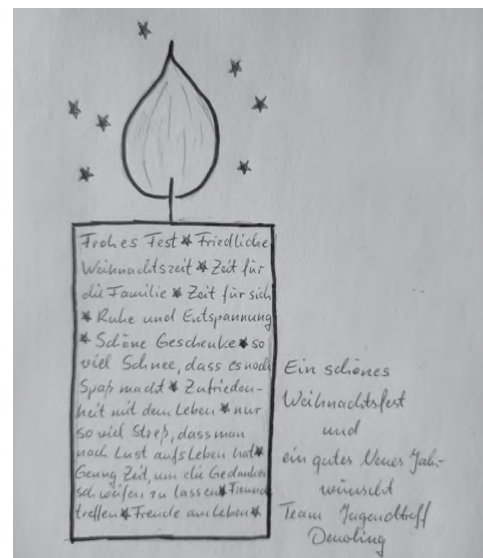 Frohes Fest * Friedliche
Weihnachtszeit * Zeit für
die Familie * Zeit für sich
* Ruhe und Entspannung
* Schöne Geschenke * so
viel Schnee, dass es noch
Spaß macht * Zufrieden-
heit mit dem Leben * nur
so viel Streß, dass man
noch Lust aufs Leben hat *
Genug Zeit, um die Gedanken
schweifen zu lassen * Freunde
treffen * Freude am Leben *
Ein schönes
Weihnachtsfest
und
ein gutes Neues Jahr
wünscht
Team Jugendtreff